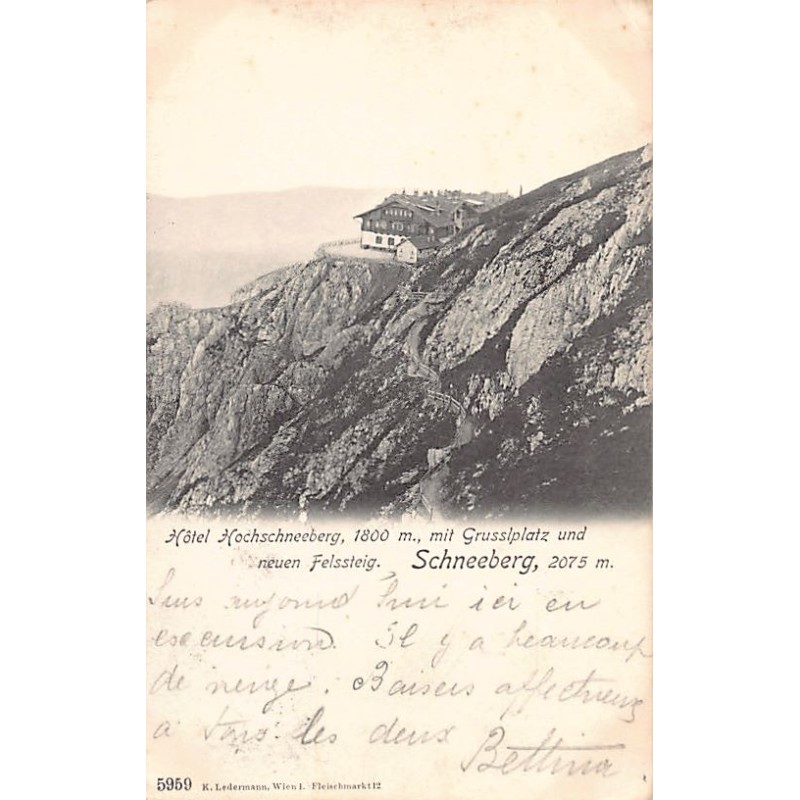 Hôtel Hochschneeberg, 1800 m., mit Grusslplatz und
neuen Felssteig. Schneeberg, 2075 m.
ici en
excursion. Il y a beaucoup
de neige. Baisers affectueux
à tous les deux
Bettina
5959 K. Ledermann, Wien I. Fleischmarkt 12